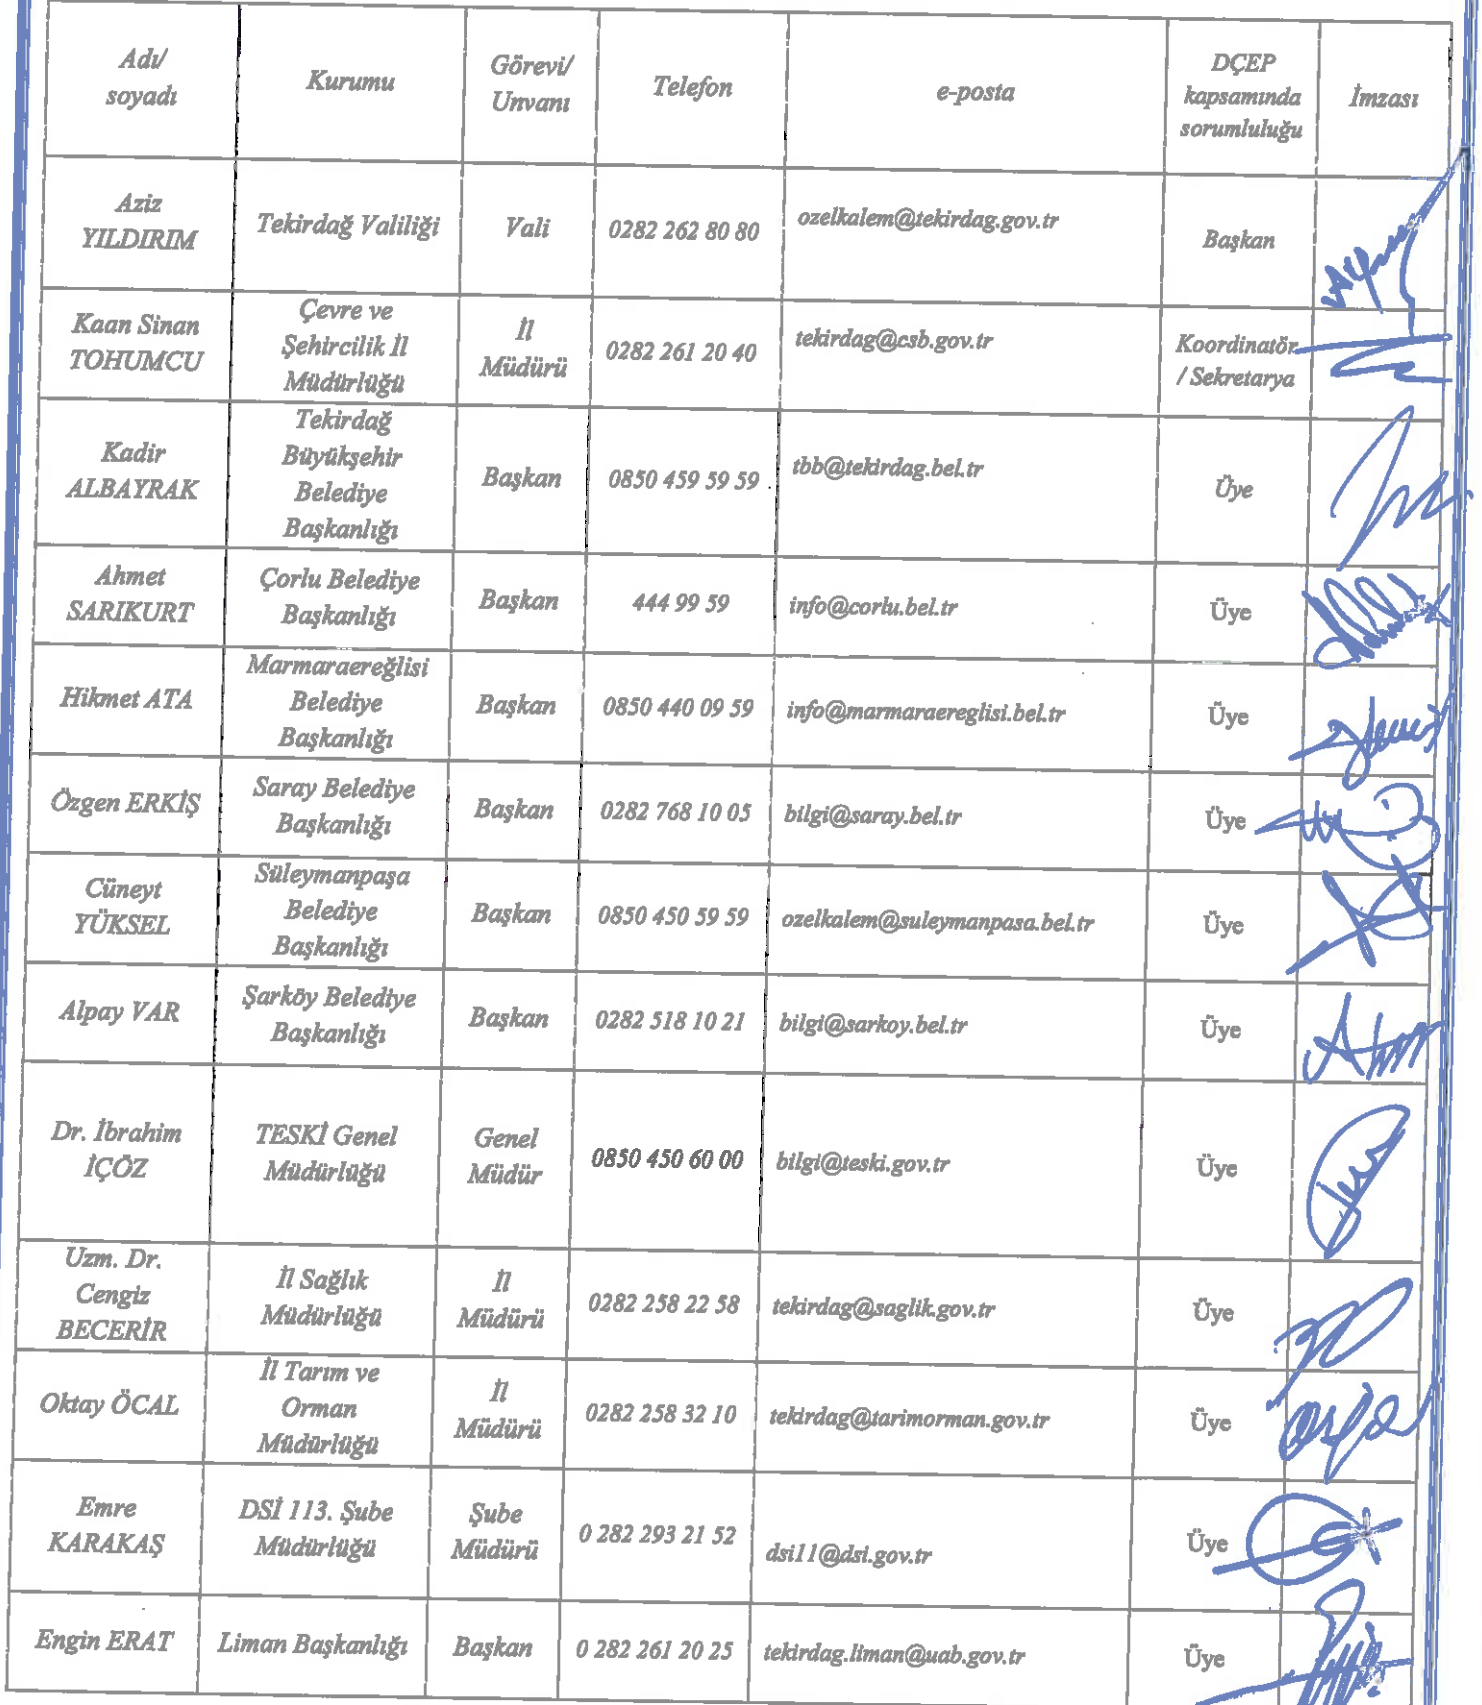 Adı/
soyadı
Kurumu
Görevi/
Unvanı
Telefon
e-posta
DÇEP
kapsamında
sorumluluğu
İmzası
Aziz
YILDIRIM
Tekirdağ Valiliği
Vali
0282 262 80 80
ozelkalem@tekirdag.gov.tr
Başkan
Kaan Sinan
TOHUMCU
Çevre ve
Şehircilik İl
Müdürlüğü
İl
Müdürü
0282 261 20 40
tekirdag@csb.gov.tr
Koordinatör
/ Sekretarya
Kadir
ALBAYRAK
Tekirdağ
Büyükşehir
Belediye
Başkanlığı
Başkan
0850 459 59 59
tbb@tekirdag.bel.tr
Üye
Ahmet
SARIKURT
Çorlu Belediye
Başkanlığı
Başkan
444 99 59
info@corlu.bel.tr
Üye
Hikmet ATA
Marmaraereğlisi
Belediye
Başkanlığı
Başkan
0850 440 09 59
info@marmaraereglisi.bel.tr
Üye
Özgen ERKİŞ
Saray Belediye
Başkanlığı
Başkan
0282 768 10 05
bilgi@saray.bel.tr
Üye
Cüneyt
YÜKSEL
Süleymanpaşa
Belediye
Başkanlığı
Başkan
0850 450 59 59
ozelkalem@suleymanpasa.bel.tr
Üye
Alpay VAR
Şarköy Belediye
Başkanlığı
Başkan
0282 518 10 21
bilgi@sarkoy.bel.tr
Üye
Dr. İbrahim
İÇÖZ
TESKİ Genel
Müdürlüğü
Genel
Müdür
0850 450 60 00
bilgi@teski.gov.tr
Üye
Uzm. Dr.
Cengiz
BECERİR
İl Sağlık
Müdürlüğü
İl
Müdürü
0282 258 22 58
tekirdag@saglik.gov.tr
Üye
Oktay ÖCAL
İl Tarım ve
Orman
Müdürlüğü
İl
Müdürü
0282 258 32 10
tekirdag@tarimorman.gov.tr
Üye
Emre
KARAKAŞ
DSİ 113. Şube
Müdürlüğü
Şube
Müdürü
0 282 293 21 52
dsi11@dsi.gov.tr
Üye
Engin ERAT
Liman Başkanlığı
Başkan
0 282 261 20 25
tekirdag.liman@uab.gov.tr
Üye